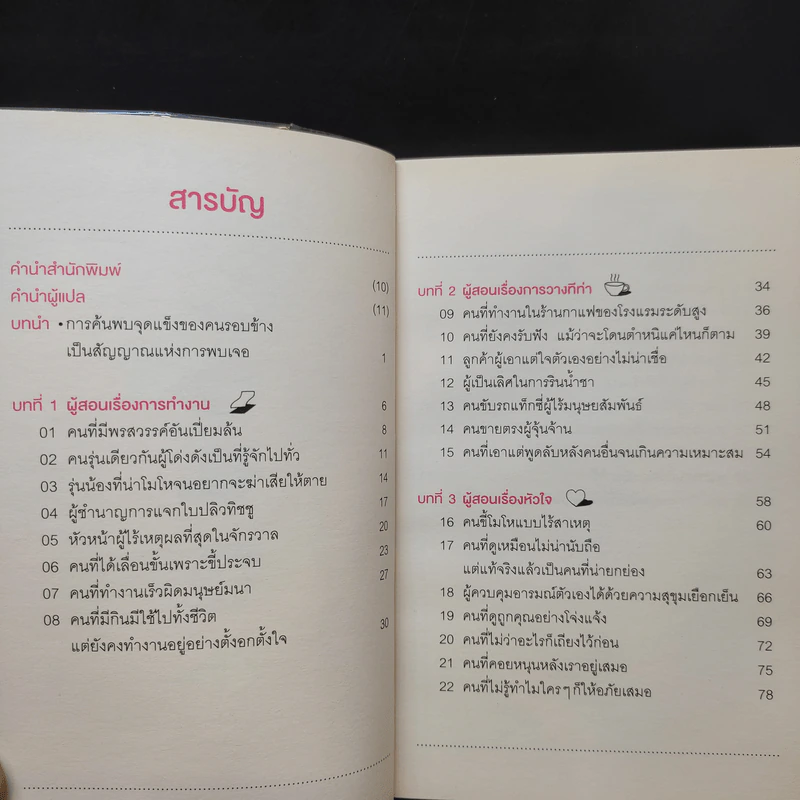 สารบัญ
คำนำสำนักพิมพ์ (10)
คำนำผู้แปล (11)
บทนำ • การค้นพบจุดแข็งของคนรอบข้าง
เป็นสัญญาณแห่งการพบเจอ 1
บทที่ 1 ผู้สอนเรื่องการทำงาน 6
01 คนที่มีพรสวรรค์อันเปี่ยมล้น 8
02 คนรุ่นเดียวกันผู้โด่งดังเป็นที่รู้จักไปทั่ว 11
03 รุ่นน้องที่น่าโมโหจนอยากจะฆ่าเสียให้ตาย 14
04 ผู้ชำนาญการแจกใบปลิวทิชชู 17
05 หัวหน้าผู้ไร้เหตุผลที่สุดในจักรวาล 20
06 คนที่ได้เลื่อนขั้นเพราะขี้ประจบ 23
07 คนที่ทำงานเร็วผิดมนุษย์มนา 27
08 คนที่มีกินมีใช้ไปทั้งชีวิต
แต่ยังคงทำงานอยู่อย่างตั้งอกตั้งใจ 30
บทที่ 2 ผู้สอนเรื่องการวางทีท่า 34
09 คนที่ทำงานในร้านกาแฟของโรงแรมระดับสูง 36
10 คนที่ยังคงรับฟัง แม้ว่าจะโดนตำหนิแค่ไหนก็ตาม 39
11 ลูกค้าผู้เอาแต่ใจตัวเองอย่างไม่น่าเชื่อ 42
12 ผู้เป็นเลิศในการรินน้ำชา 45
13 คนขับรถแท็กซี่ผู้ไร้มนุษยสัมพันธ์ 48
14 คนขายตรงผู้จุ้นจ้าน 51
15 คนที่เอาแต่พูดลับหลังคนอื่นจนเกินความเหมาะสม 54
บทที่ 3 ผู้สอนเรื่องหัวใจ 58
16 คนขี้โมโหแบบไร้สาเหตุ 60
17 คนที่ดูเหมือนไม่น่านับถือ
แต่แท้จริงแล้วเป็นคนที่น่ายกย่อง 63
18 ผู้ควบคุมอารมณ์ตัวเองได้ด้วยความสุขุมเยือกเย็น 66
19 คนที่ดูถูกคุณอย่างโจ่งแจ้ง 69
20 คนที่ไม่ว่าอะไรก็เถียงไว้ก่อน 72
21 คนที่คอยหนุนหลังเราอยู่เสมอ 75
22 คนที่ไม่รู้ทำไมใครๆ ก็ให้อภัยเสมอ 78